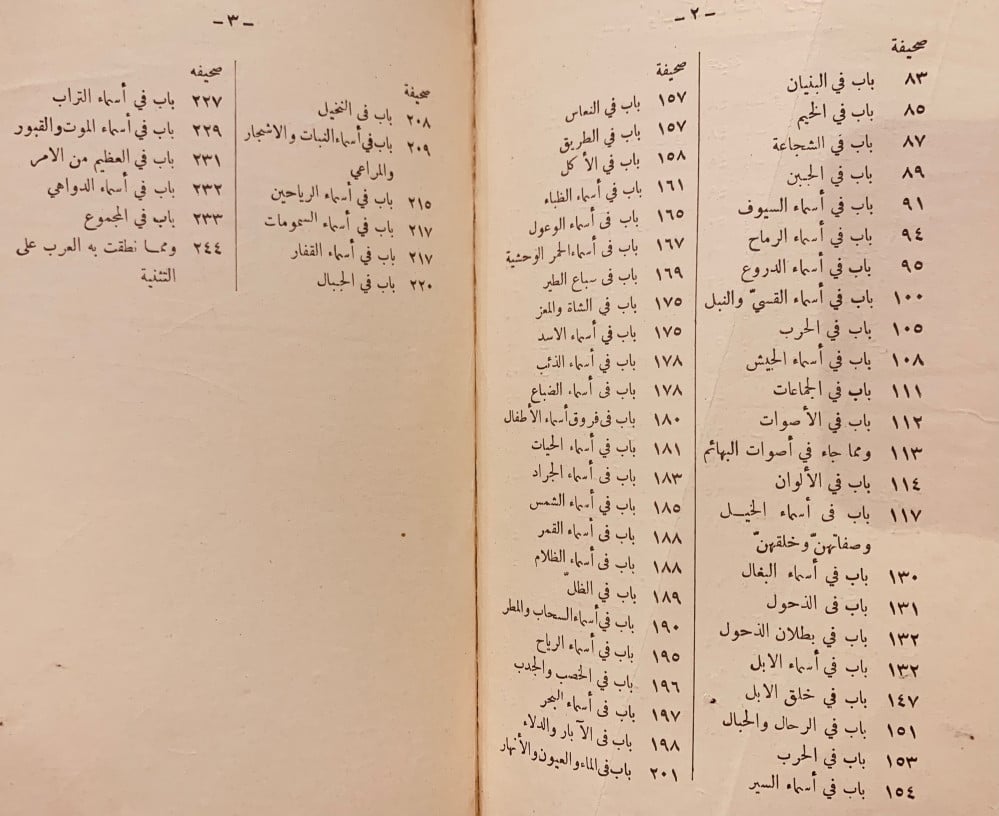 - ٢ -
صحيفة
٨٣ باب في البنيان
٨٥ باب في الخيم
٨٧ باب في الشجاعة
٨٩ باب في الجبن
٩١ باب في أسماء السيوف
٩٤ باب في أسماء الرماح
٩٥ باب في أسماء الدروع
١٠٠ باب في أسماء القسيّ والنبل
١٠٥ باب في الحرب
١٠٨ باب في أسماء الجيش
١١١ باب في الجماعات
١١٢ باب في الأصوات
١١٣ ومما جاء في أصوات البهائم
١١٤ باب في الألوان
١١٧ باب فى أسماء الخيـل
وصفاتهنّ وخلقهنّ
١٣٠ باب في أسماء البغال
١٣١ باب فى الذحول
١٣٢ باب في بطلان الذحول
١٣٢ باب في أسماء الابل
١٤٧ باب في خلق الابل
١٥١ باب في الرحال والحبال
١٥٣ باب في الحرب
١٥٤ باب في أسماء السير
صحيفة
١٥٧ باب في النعاس
١٥٧ باب في الطريق
١٥٨ باب في الأكل
١٦١ باب في أسماء الظباء
١٦٥ باب فى أسماء الوعول
١٦٧ باب فى أسماء الحمر الوحشية
١٦٩ باب فى سباع الطير
١٧٥ باب في الشاة والمعز
١٧٥ باب في أسماء الاسد
١٧٨ باب في أسماء الذئب
١٧٨ باب في أسماء الضباع
١٨٠ باب فى فروق أسماء الأطفال
١٨١ باب في أسماء الحيات
١٨٣ باب فى أسماء الجراد
١٨٥ باب فى أسماء الشمس
١٨٨ باب فى أسماء القمر
١٨٨ باب فى أسماء الظلام
١٨٩ باب في الظلّ
١٩٠ باب في أسماء السحاب والمطر
١٩٥ باب في أسماء الرياح
١٩٦ باب في الخصب والجدب
١٩٧ باب في أسماء البحر
١٩٨ باب فى الآبار والدلاء
٢٠١ باب فى الماء والعيون والأنهار
- ٣ -
صحيفة
٢٠٨ باب فى النخيل
٢٠٩ باب في أسماء النبات والاشجار
والمراعي
٢١٥ باب في أسماء الرياحين
٢١٧ باب في أسماء السمومات
٢١٧ باب في أسماء القفار
٢٢٠ باب في الجبال
صحيفه
٢٢٧ باب في أسماء التراب
٢٢٩ باب في أسماء الموت والقبور
٢٣١ باب في العظيم من الامر
٢٣٢ باب في أسماء الدواهي
٢٣٣ باب في المجموع
٢٤٤ ومما نطقت به العرب على
التثنية